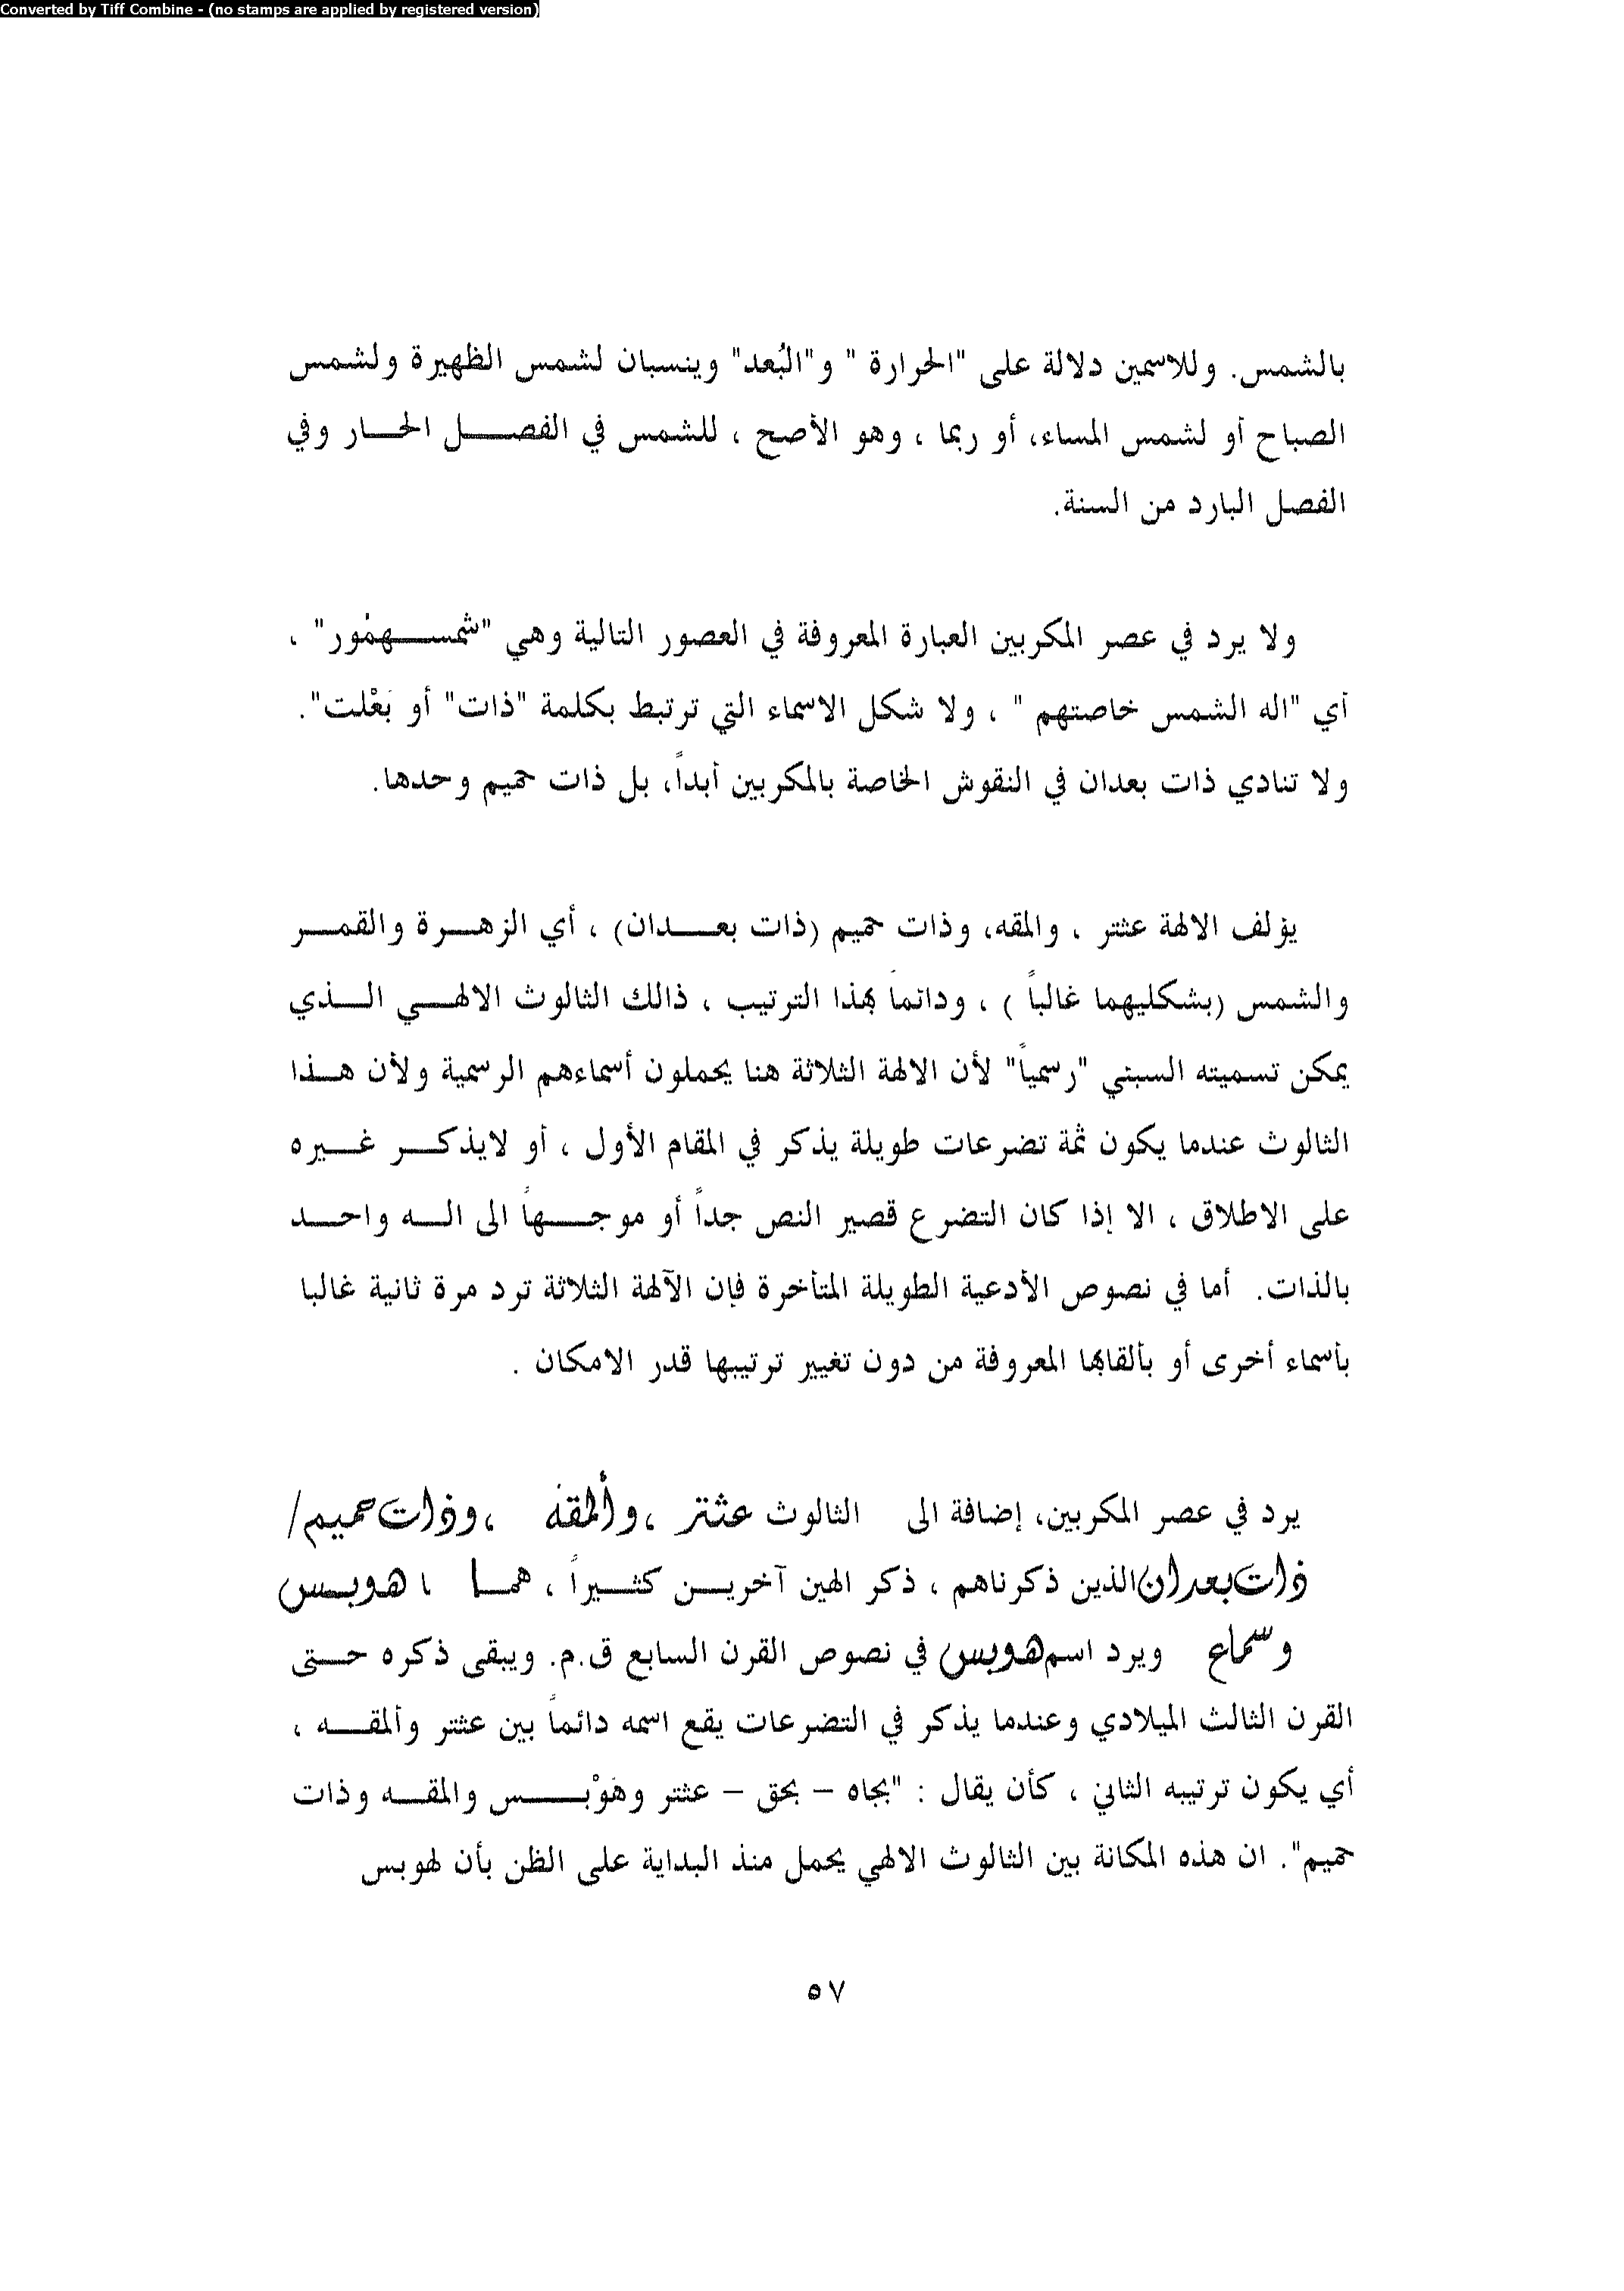 Converted by Tiff Combine - (no stamps are applied by registered version)
بالشمس. وللاسمين دلالة على "الحرارة " و"البُعد" وينسبان لشمس الظهيرة ولشمس
الصباح أو لشمس المساء، أو ربما ، وهو الأصح ، للشمس في الفصل الحار وفي
الفصل البارد من السنة.
ولا يرد في عصر المكربين العبارة المعروفة في العصور التالية وهي "شمسهمُور" ،
أي "اله الشمس خاصتهم " ، ولا شكل الاسماء التي ترتبط بكلمة "ذات" أو بَعْلت".
ولا تنادي ذات بعدان في النقوش الخاصة بالمكربين أبداً، بل ذات حميم وحدها.
يؤلف الالهة عثتر ، والمقه، وذات حميم (ذات بعدان) ، أي الزهرة والقمر
والشمس (بشكليهما غالباً ) ، ودائماَ بهذا الترتيب ، ذالك الثالوث الالهي الذي
يمكن تسميته السبئي "رسمياً" لأن الالهة الثلاثة هنا يحملون أسماءهم الرسمية ولأن هذا
الثالوث عندما يكون ثمة تضرعات طويلة يذكر في المقام الأول ، أو لايذكر غيره
على الاطلاق ، الا إذا كان التضرع قصير النص جداً أو موجهاً الى اله واحد
بالذات. أما في نصوص الأدعية الطويلة المتأخرة فإن الآلهة الثلاثة ترد مرة ثانية غالبا
بأسماء أخرى أو بألقابها المعروفة من دون تغيير ترتيبها قدر الامكان .
يرد في عصر المكربين، إضافة الى الثالوث عثتر ،وألمقه ،وذات حميم/
ذات بعدان الذين ذكرناهم ، ذكر الهين آخرين كثيراً ، هما ، هوبس
وسماع ويرد اسم هوبس في نصوص القرن السابع ق.م. ويبقى ذكره حتى
القرن الثالث الميلادي وعندما يذكر في التضرعات يقع اسمه دائماً بين عثتر وألمقه ،
أي يكون ترتيبه الثاني ، كأن يقال : "بجاه – بحق – عثتر وهَوْبس والمقه وذات
حميم". ان هذه المكانة بين الثالوث الالهي يحمل منذ البداية على الظن بأن لهوبس
٥٧